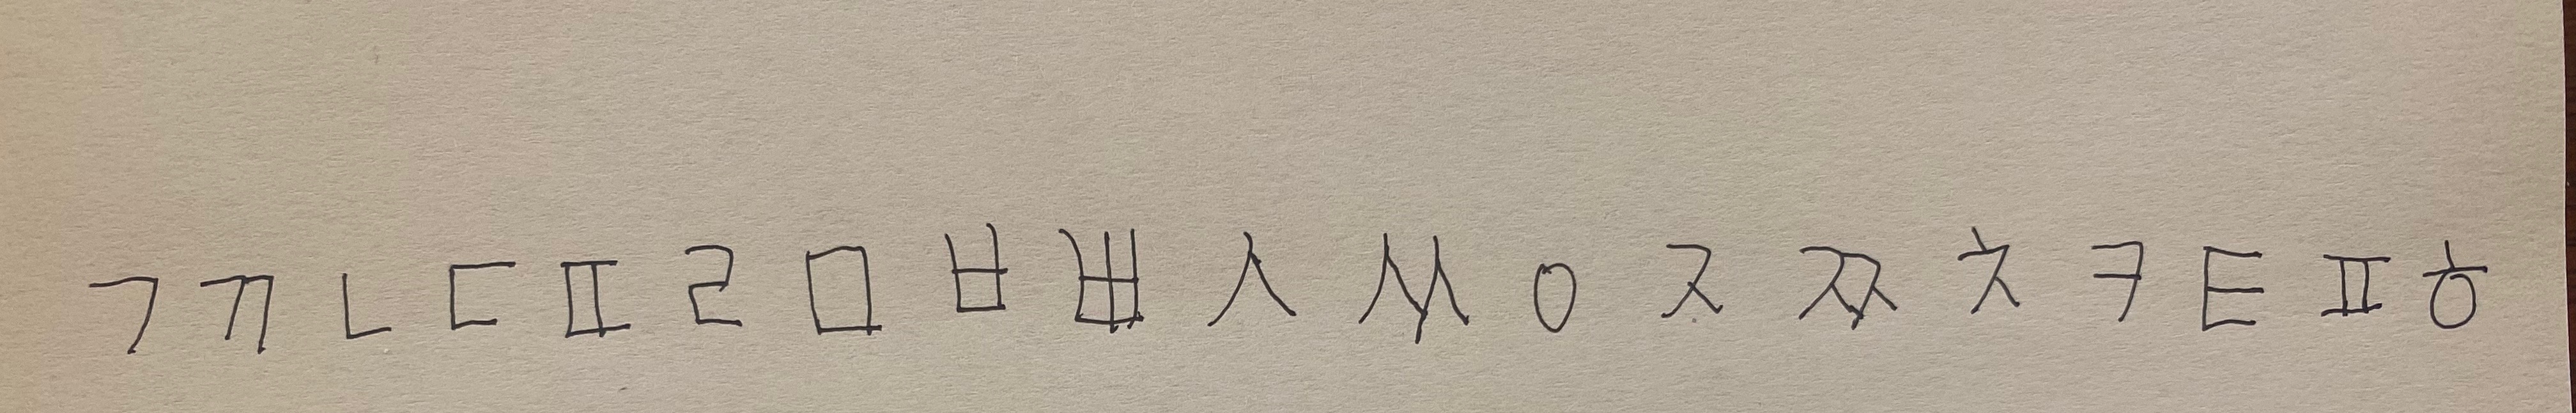 ㄱ ㄲ ㄴ ㄷ ㄸ ㄹ ㅁ ㅂ ㅃ ㅅ ㅆ ㅇ ㅈ ㅉ ㅊ ㅋ ㅌ ㅍ ㅎ